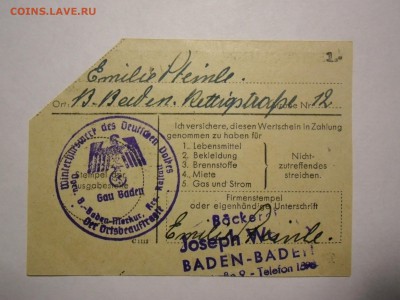 COINS.LAVE.RU
1.-
Emilie Steinle.
Ort: B.-Baden. Rettigstraße Nr. 12
Ich versichere, diesen Wertschein in Zahlung
genommen zu haben für
1. Lebensmittel
2. Bekleidung
3. Brennstoffe
4. Miete
5. Gas und Strom
Nicht-
zutreffendes
streichen.
Winterhilfswerk des Deutschen Volkes
Stempel der
Ausgabestelle
Gau Baden
B.-Baden-Merkur, Krs. Rastatt
Der Ortsbeauftragte
Firmenstempel
oder eigenhändige Unterschrift
Emilie Steinle.
Bäckerei
Joseph
BADEN-BADEN
9 - Telefon